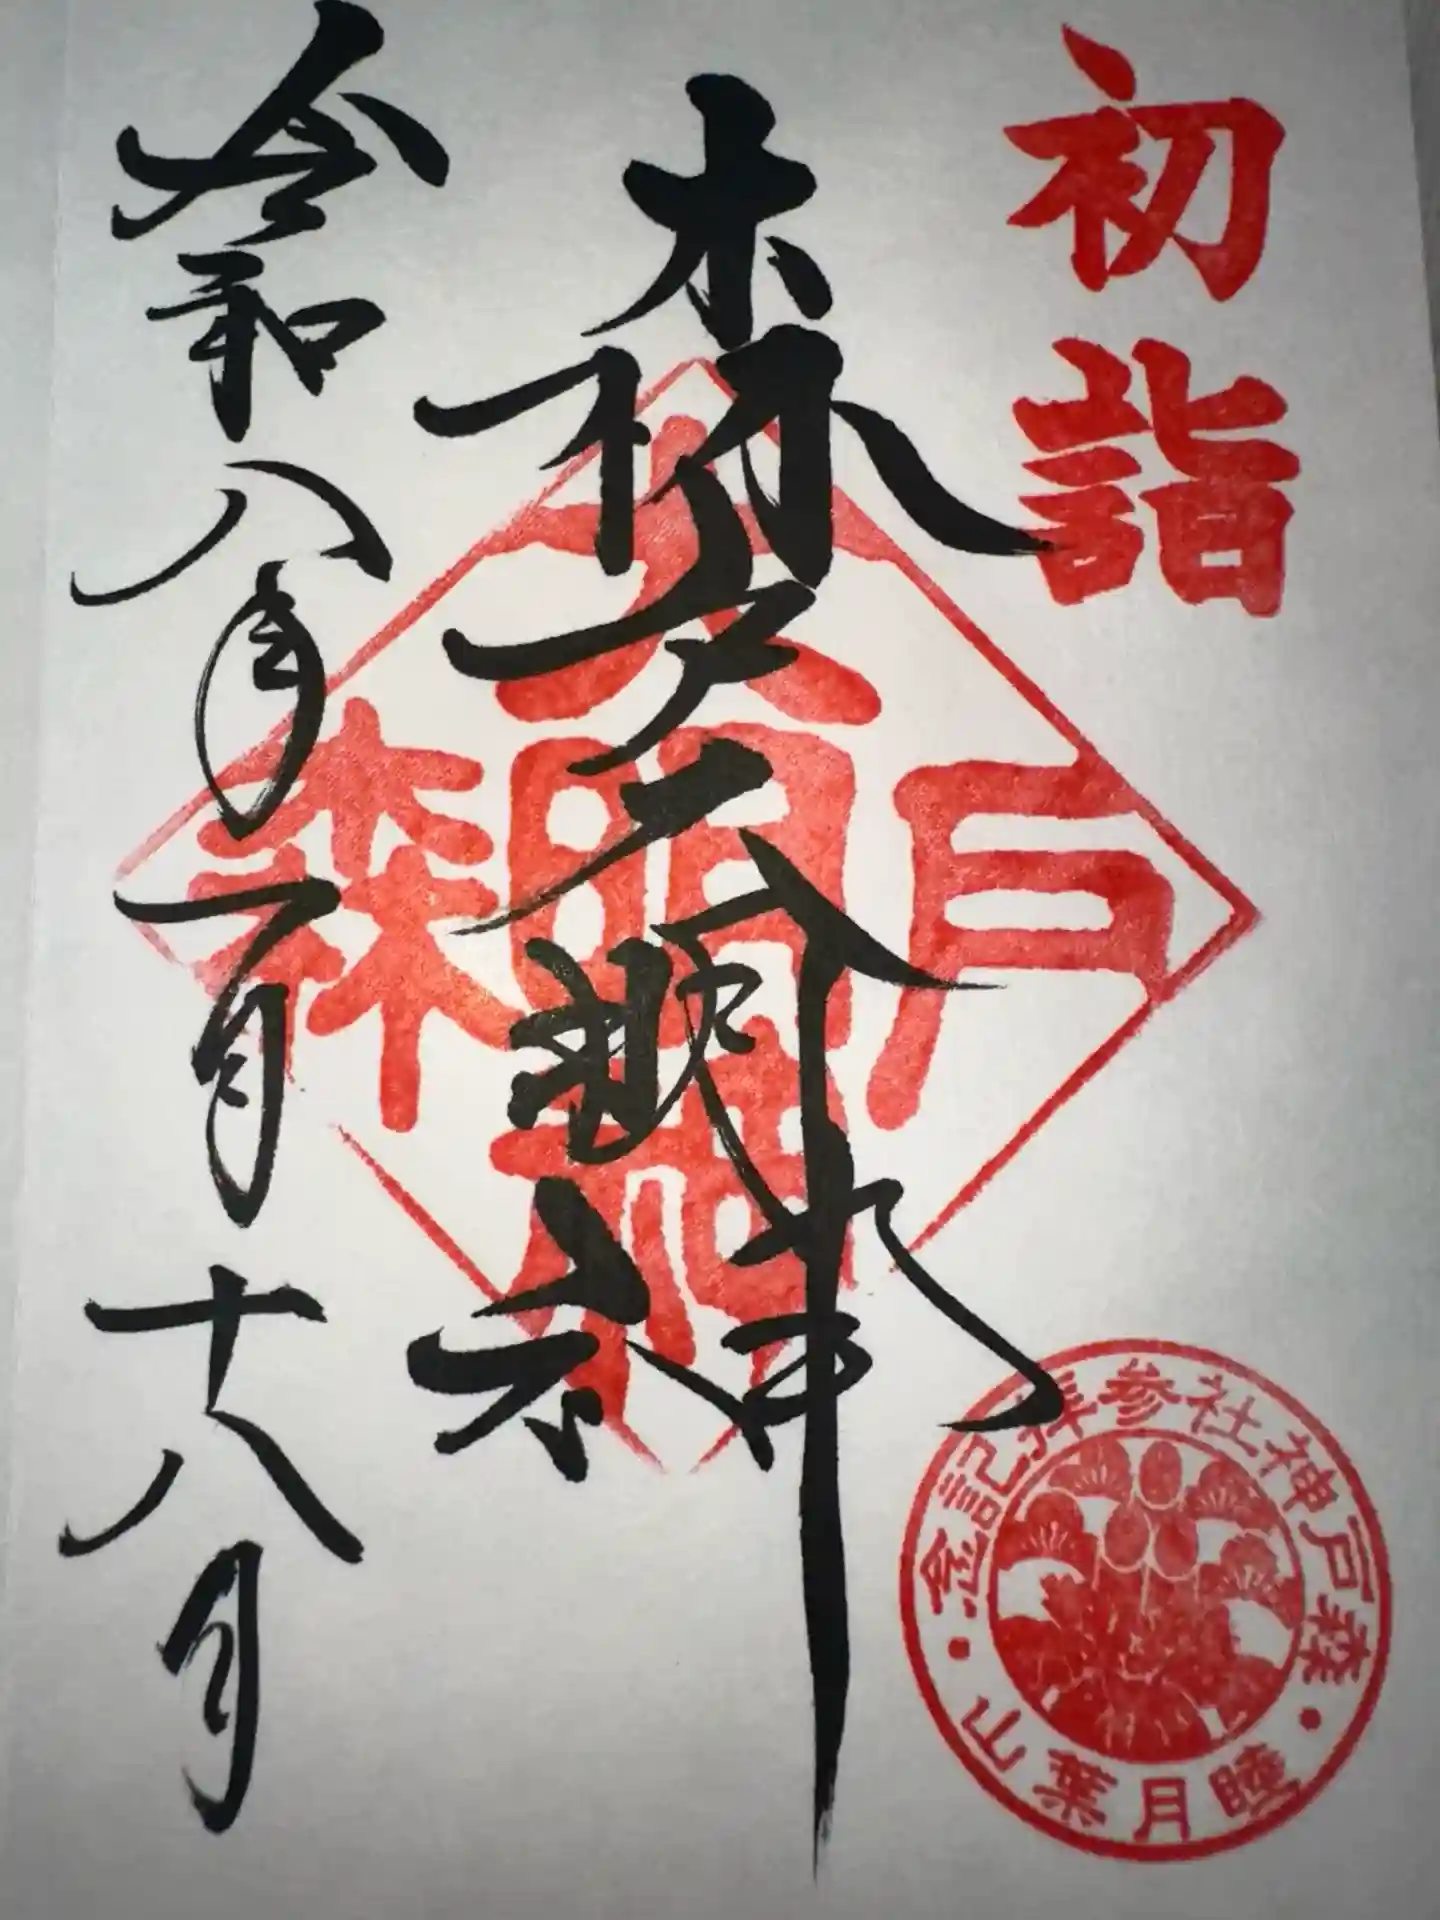 初詣
森戸大明神
令和八年一月十八日
大明神
森
戸
森戸神社参拝記念
睦月葉山